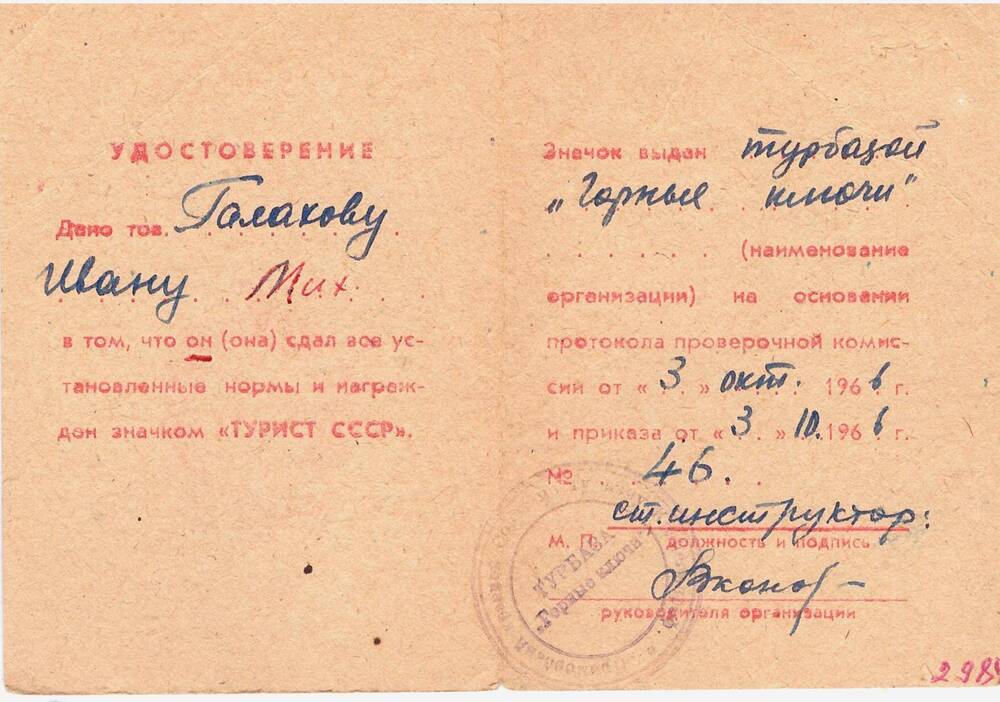 УДОСТОВЕРЕНИЕ
Дано тов. Галахову
Ивану Мих
в том, что он (она) сдал все ус-
тановленные нормы и награж-
ден значком «ТУРИСТ СССР».
Значок выдан турбазой
„Горные ключи"
(наименование
организации) на основании
протокола проверочной комис-
сии от «3» окт. 1966 г.
и приказа от «3» 10. 1966 г.
№ 46.
ст. инструктор:
М. П. должность и подпись
руководителя организации
ТУРБАЗА
„Горные ключи"
298